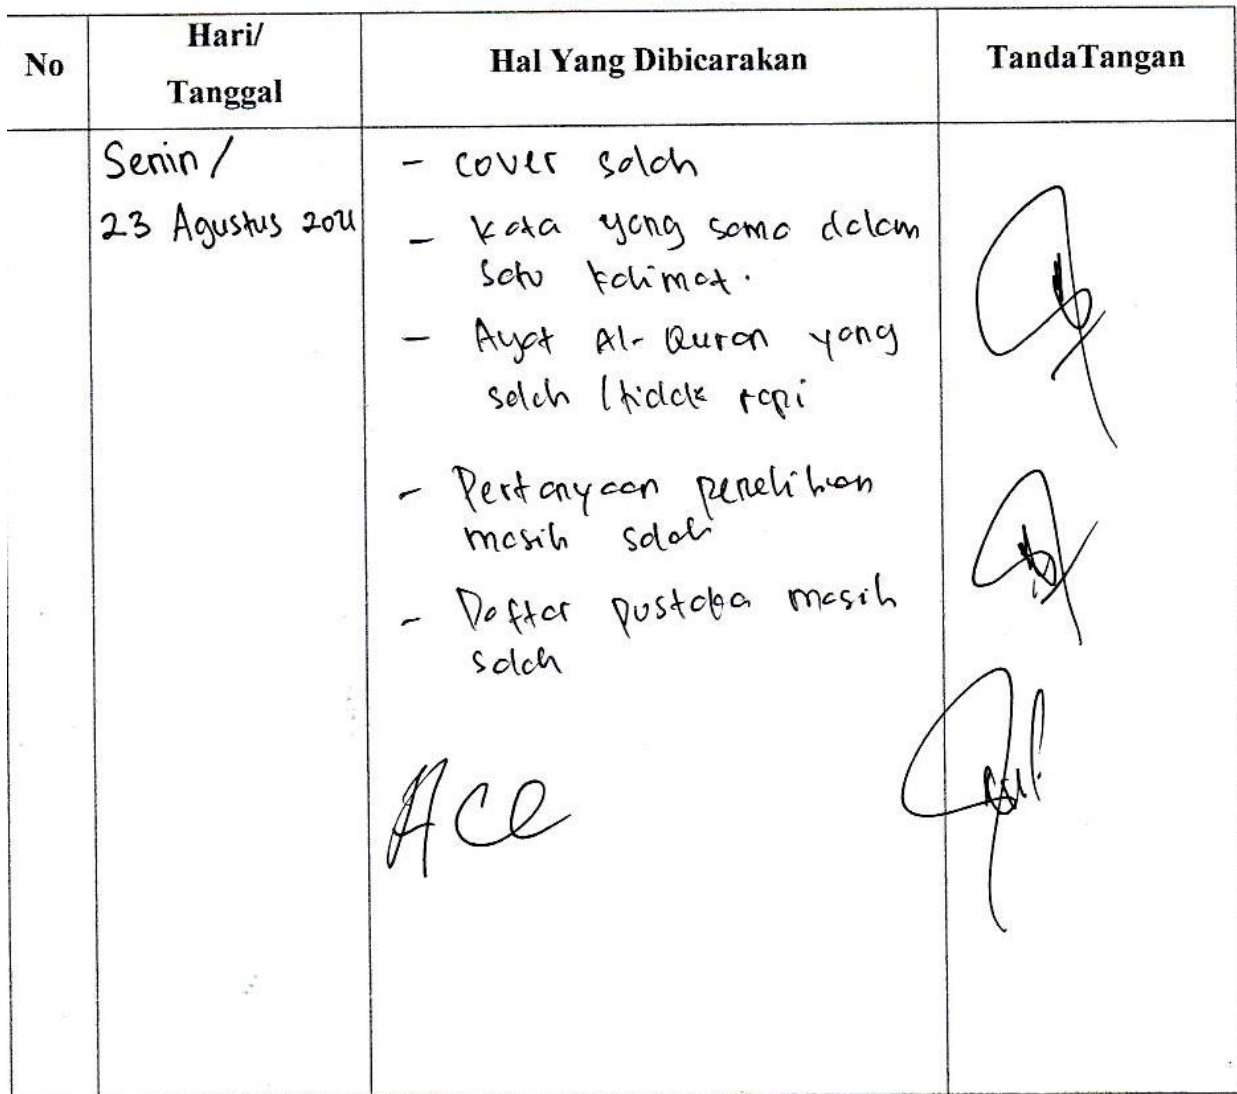 No
Hari/
Tanggal
Hal Yang Dibicarakan
TandaTangan
Senin /
23 Agustus 2021
- cover salah
- kata yang sama dalam
satu kalimat.
- Ayat Al-Quran yang
salah / tidak rapi
- Pertanyaan penelitian
masih salah
- Daftar pustaka masih
salah
ACC